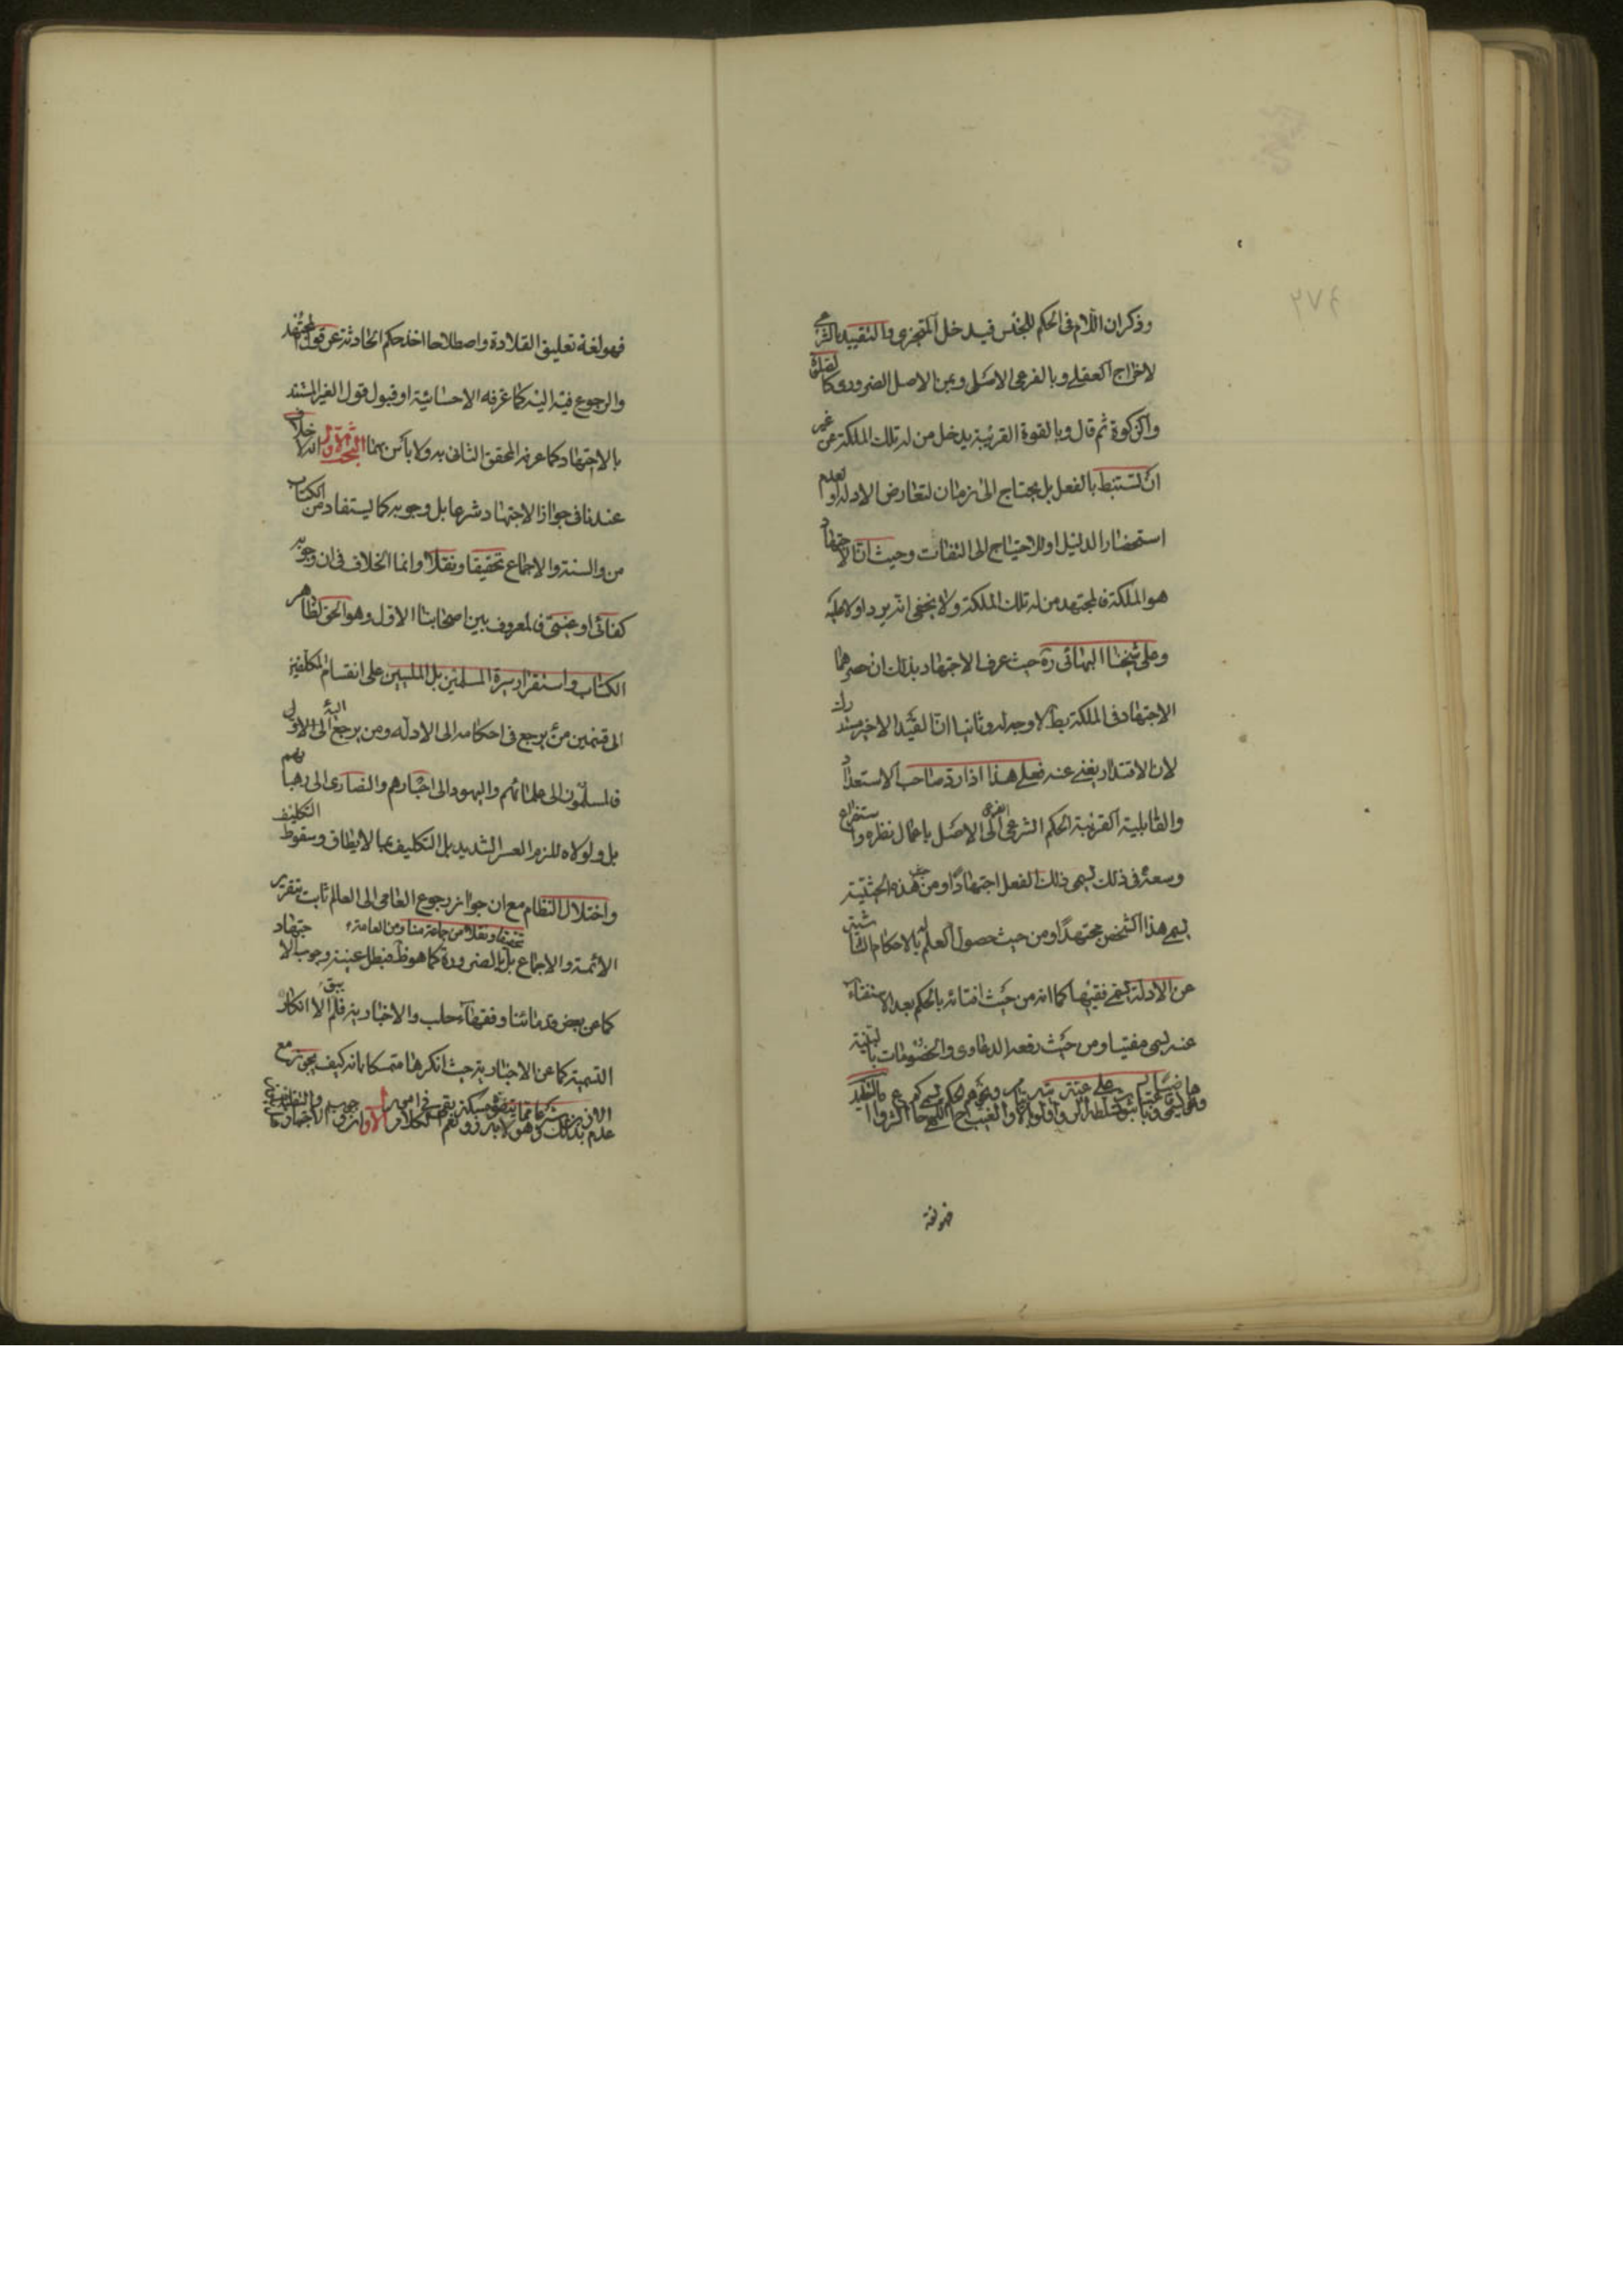 وذكر ان اللام في الحكم للجنس فيدخل المتجزي والتقييد بالشرعي
لاخراج العقلي وبالفرعي الاصلي ومن الاصل الضروري كالصلوة
والزكوة ثم قال وبالقوة القريبة يدخل من له تلك الملكة من غير
ان يستنبط بالفعل بل يحتاج الى زمان لتعارض الادلة او لعدم
استحضار الدليل او للاحتياج الى التفات وحيث ان الاجتهاد
هو الملكة فالمجتهد من له تلك الملكة ولا يخفى انه يرد اولا عليه
وعلى شيخنا البهائي ره حيث عرف الاجتهاد بذلك ان حصرهما
الاجتهاد في الملكة بط لا وجه له وثانيا ان القيد الاخير مستدرك
لان الاقتدار يغني عنه فعلى هذا اذا رد صاحب الاستعداد
والقابلية القريبة الحكم الشرعي الفرعي الى الاصل باعمال نظره واستفراغ
وسعه في ذلك يسمى ذلك الفعل اجتهادا ومن هذه الحيثية
يسمى هذا الشخص مجتهدا ومن حيث حصول العلم له بالاحكام الناشئة
عن الادلة يسمى فقيها كما انه من حيث افتائه بالحكم بعد الاستفتاء
عنه يسمى مفتيا ومن حيث رفعه الدعاوى والخصومات بالبينة
فهو لغة
فهو لغة تعليق القلادة واصطلاحا اخذ حكم الحادثة عن قول المجتهد
والرجوع فيه اليه كما عرفه الاحسائية او قبول قول الغير المستند
بالاجتهاد كما عرفه المحقق الثاني به ولا بأس بهما البحث الاول انه لا خلاف
عندنا في جواز الاجتهاد شرعا بل وجوبه كما يستفاد من الكتاب
من والسنة والاجماع تحقيقا ونقلا وانما الخلاف في ان وجوبه
كفائي او عيني فالمعروف بين اصحابنا الاول وهو الحق لظاهر
الكتاب واستقرار سيرة المسلمين بل المليين على انقسام المكلفين
الى قسمين من يرجع في احكامه الى الادله ومن يرجع اليه الى الاول
فالمسلمون الى علمائهم واليهود الى احبارهم والنصارى الى رهبانهم
بل ولولاه للزم العسر الشديد بل التكليف بما لا يطاق وسقوط التكليف
واختلال النظام مع ان جواز رجوع العامي الى العالم ثابت بتقرير
تحقيقا ونقلا من جماعة منا ومن العامة
الائمة والاجماع بل بالضرورة كما هو ظ فبطل عينية وجوب الاجتهاد
كما عن بعض قدمائنا وفقهاء حلب والاخبارية فلم يبق الا انكار
التسمية كما عن الاخبارية حيث انكرها متمسكا بانه كيف يجوز مع